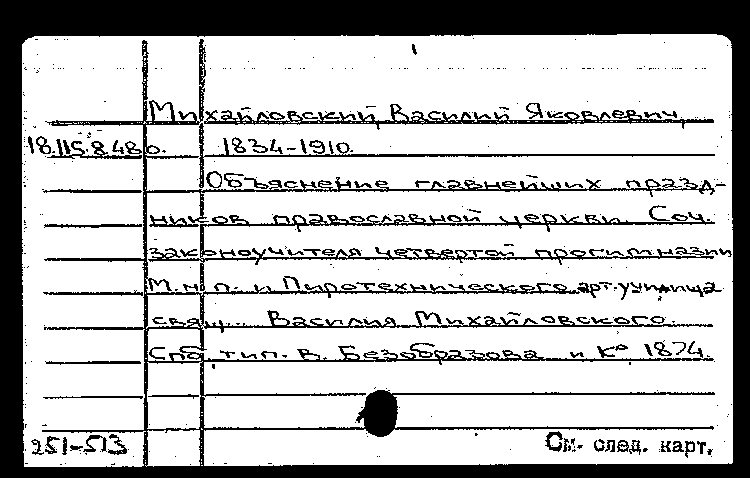 Михайловский, Василий Яковлевич,
18.115.8.48 о. 1834-1910.
Объяснение главнейших празд-
ников православной церкви. Соч.
законоучителя четвертой прогимназии
М.н.п. и Пиротехнического арт. училища
свящ. Василия Михайловского.
Спб, тип. В. Безобразова и К° 1874.
251-513 См. след. карт.